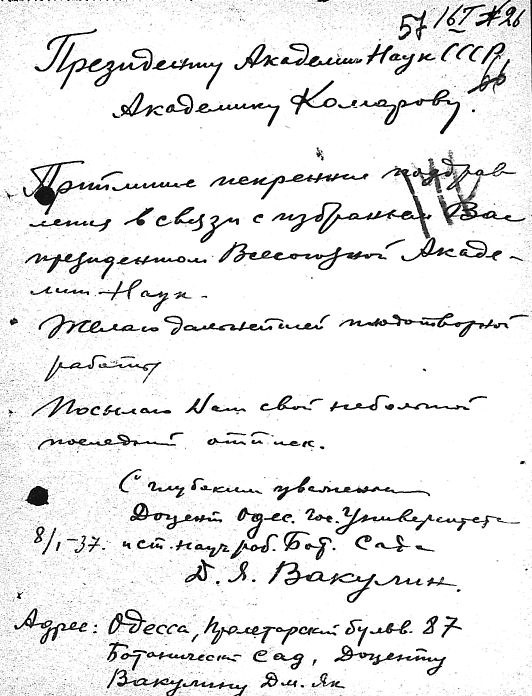 57 16 I 26
Президенту Академии Наук СССР
66
Академику Комарову.
Примите искренние поздрав
ления в связи с избранием Вас
президентом Всесоюзной Акаде-
мии Наук.
Желаю дальнейшей плодотворной
работы
Посылаю Вам свой небольшой
последний оттиск.
С глубоким уважением
Доцент Одес. Гос. Университета
8/I-37. и ст. науч. раб. Бот. Сада
Д. Я. Вакулин.
Адрес: Одесса, Пролетарский бульв. 87
Ботанический Сад, Доценту
Вакулину Дм. Як